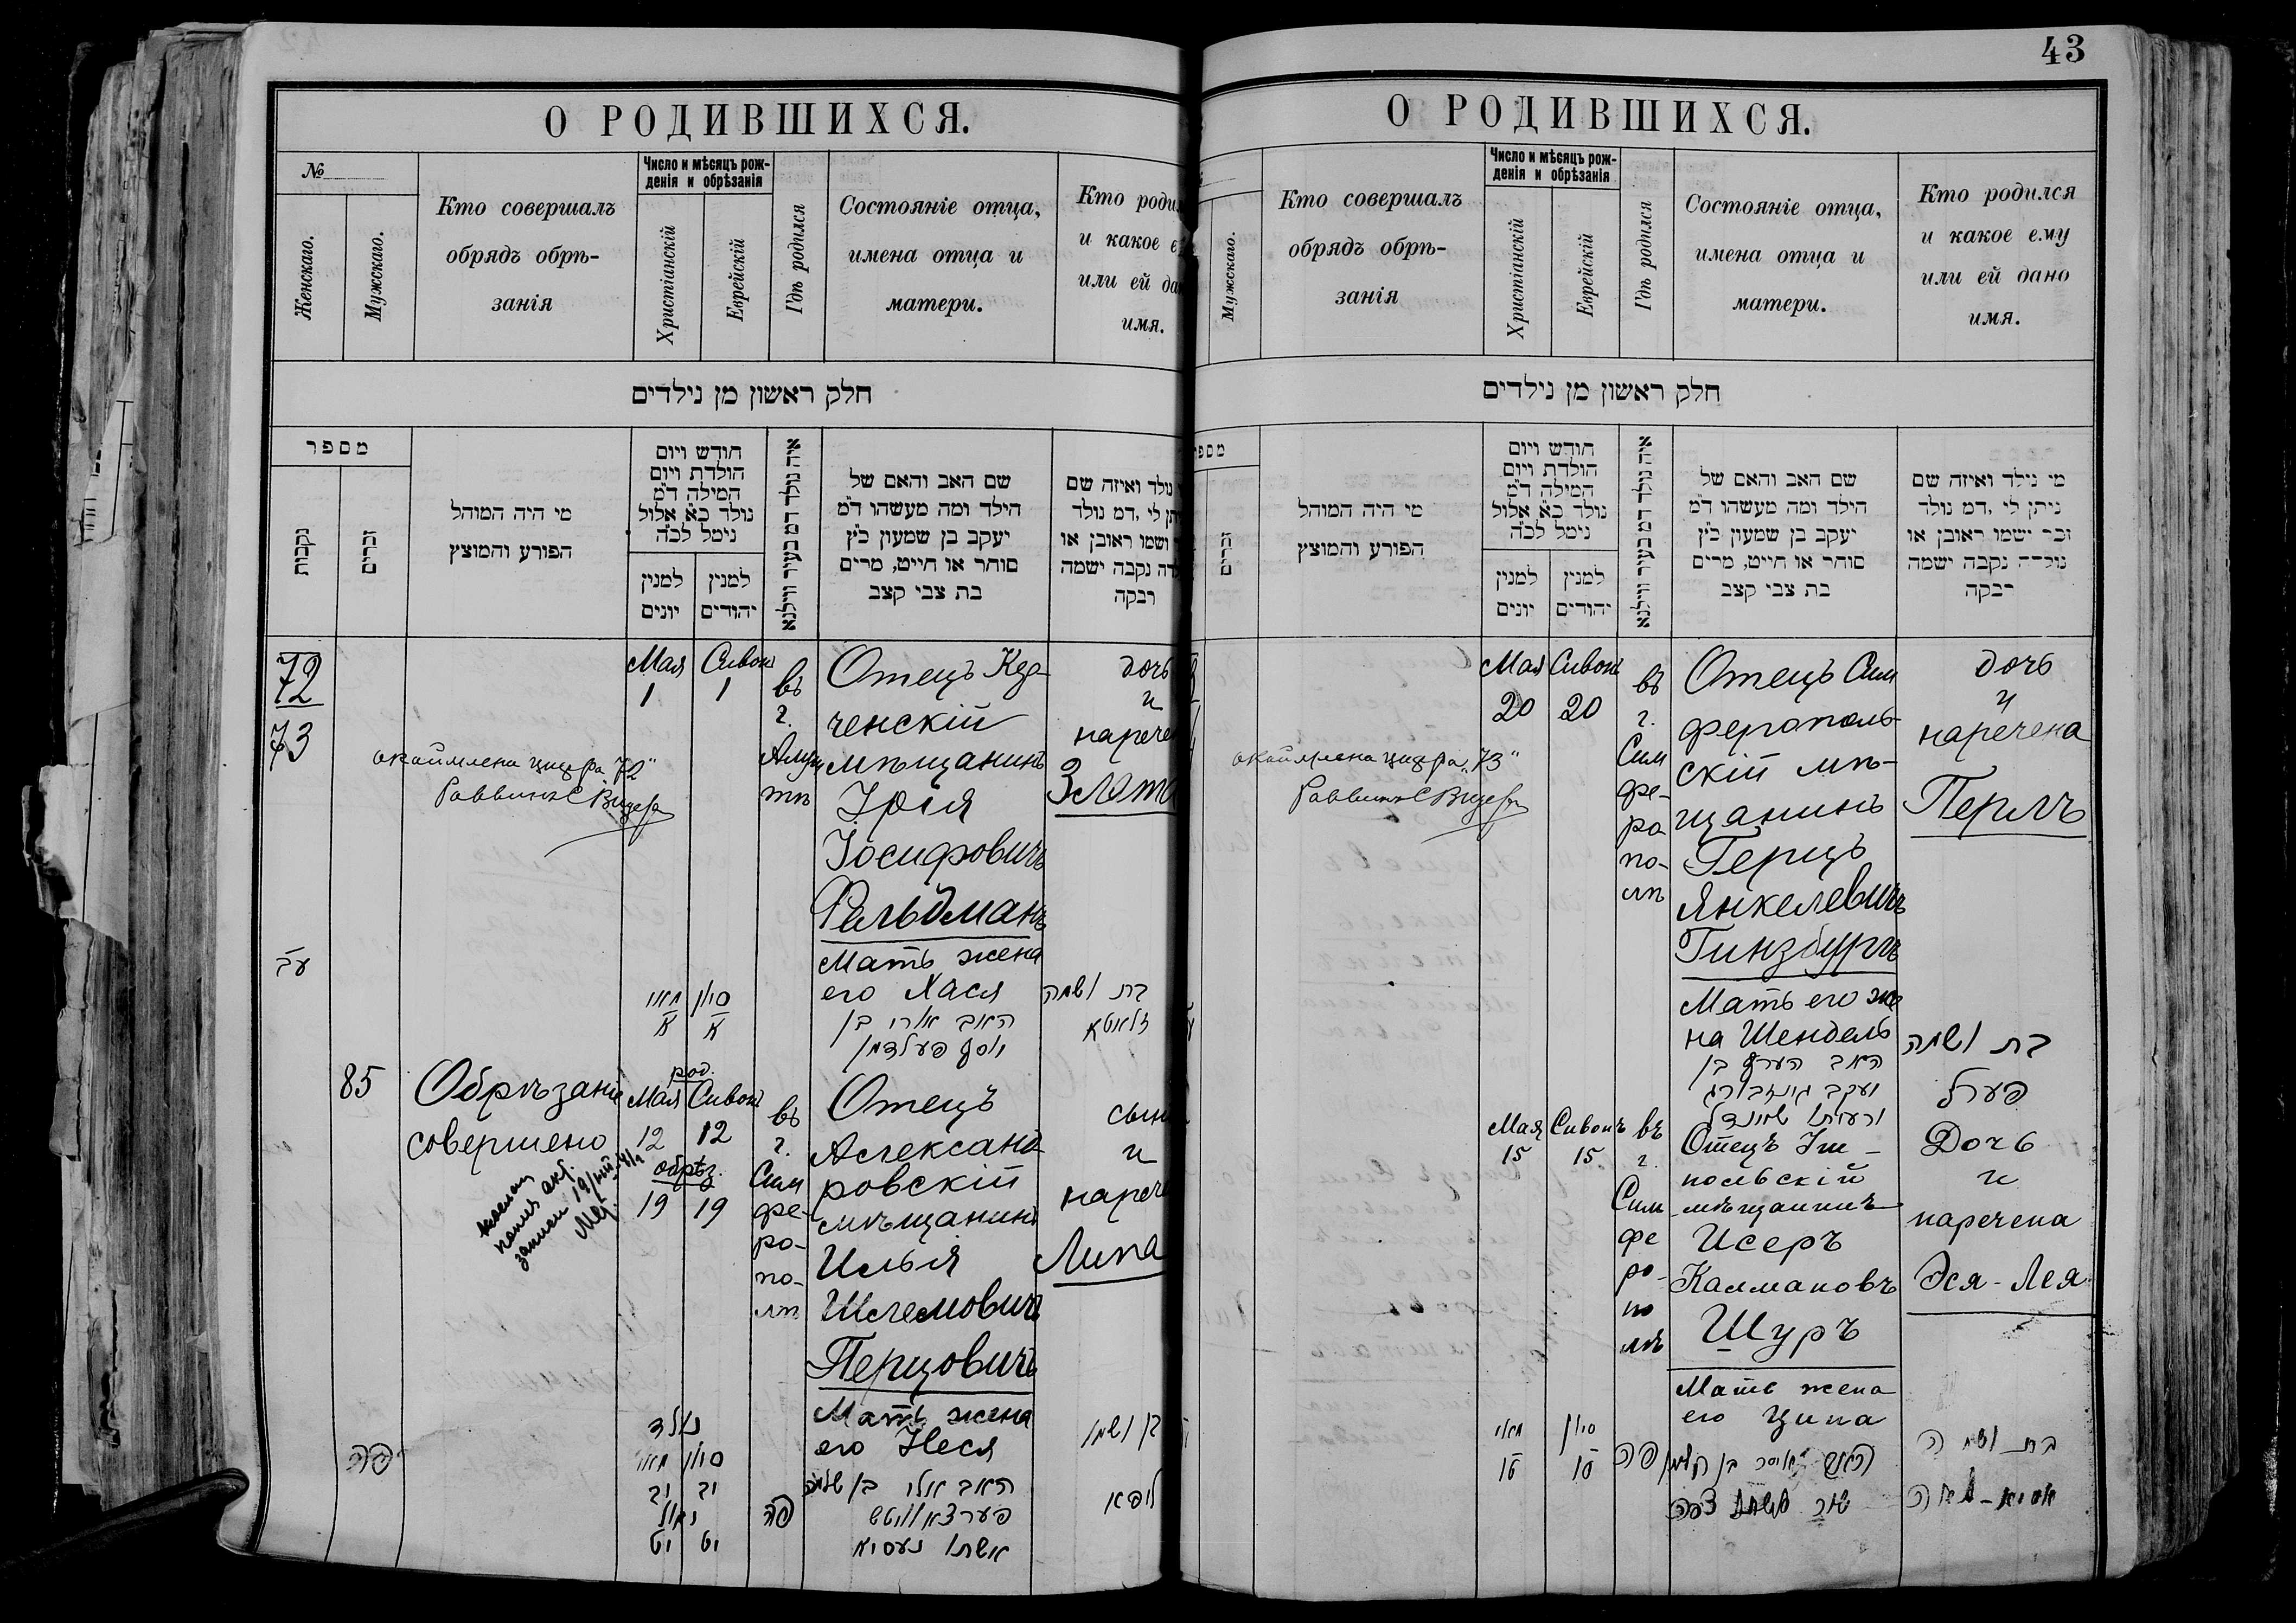 43
О РОДИВШИХСЯ.
№
Женскаго.
Мужскаго.
Кто совершалъ
обрядъ обрѣ-
занія
Число и мѣсяцъ рож-
денія и обрѣзанія
Христіанскій
Еврейскій
Гдѣ родился
Состояніе отца,
имена отца и
матери.
Кто роди
и какое е
или ей да
имя.
חלק ראשון מן נילדים
מספר
נקבות
זכרים
מי היה המוהל
הפורע והמוצץ
חודש ויום
הולדת ויום
המילה ד״מ
נולד כ״א אלול
נימל לכ״ה
למנין
יונים
למנין
יהודים
איה נולד דמ בעיר ווילנא
שם האב והאם של
הילד ומה מעשהו ד״מ
יעקב בן שמעון כ״ץ
סוחר או חייט, מרים
בת צבי קצב
נולד ואיזה שם
תן לי ,דמ נולד
ושמו ראובן או
דה נקבה ישמה
רבקה
72
73
окаймлена цифра „72“
Раввинъ
Мая
1
Сивонъ
1
въ
г.
Отецъ
ченскій
мѣщанинъ
Іосифовичъ
Фельдманъ
Мать жена
его Хася
האב
בן
יוסף פעלדמן
дочь
и
нарече
Злот
בת ושמה
זלאטא
עב
מאי
א
סיון
א
85
Обрѣзані
совершено
род.
Мая
12
Сивонъ
12
обрѣз.
19
19
въ
г.
Сим
фе-
ро-
по-
лѣ
Отецъ
Александ-
ровскій
мѣщанинъ
Илья
Шлемовичъ
Перцовичъ
Мать жена
его Неся
האב אלי בן שלמה
פערצאוויטש
אשתו נעסיא
сын
и
нарече
Липа
בן ושמו
ליפא
פה
נולד
מאי סיון
יב יב
נימול
יט יט
פה
О РОДИВШИХСЯ.
Мужскаго.
Кто совершалъ
обрядъ обрѣ-
занія
Число и мѣсяцъ рож-
денія и обрѣзанія
Христіанскій
Еврейскій
Гдѣ родился
Состояніе отца,
имена отца и
матери.
Кто родился
и какое ему
или ей дано
имя.
חלק ראשון מן נילדים
מספ
זכרים
מי היה המוהל
הפורע והמוצץ
חודש ויום
הולדת ויום
המילה ד״מ
נולד כ״א אלול
נימל לכ״ה
למנין
יונים
למנין
יהודים
איה נולד דמ בעיר ווילנא
שם האב והאם של
הילד ומה מעשהו ד״מ
יעקב בן שמעון כ״ץ
סוחר או חייט, מרים
בת צבי קצב
מי נילד ואיזה שם
ניתן לי ,דמ נולד
זכר ישמו ראובן או
נולדה נקבה ישמה
רבקה
окаймлена цифра „73“
Раввинъ
Мая
20
Сивонъ
20
въ
г.
Сим
фе-
ро
по-
лѣ
Отецъ Сим
ферополь-
скій мѣ-
щанинъ
Герцъ
Янкелевичъ
Гинзбургъ
Мать его же
на Шендель
האב הערץ בן
יעקב גינזבורג
дочь
и
наречена
Перль
בת ושמה
פערל
Мая
15
Сивонъ
15
въ
г.
Сим
фе
ро-
по
лѣ
Отецъ
польскій
мѣщанинъ
Исеръ
Калмановъ
Шуръ
Мать жена
его Ципа
Дочь
и
наречена
Эся-Лея
מאי
טו
סיון
טו
פה
בת ושמה